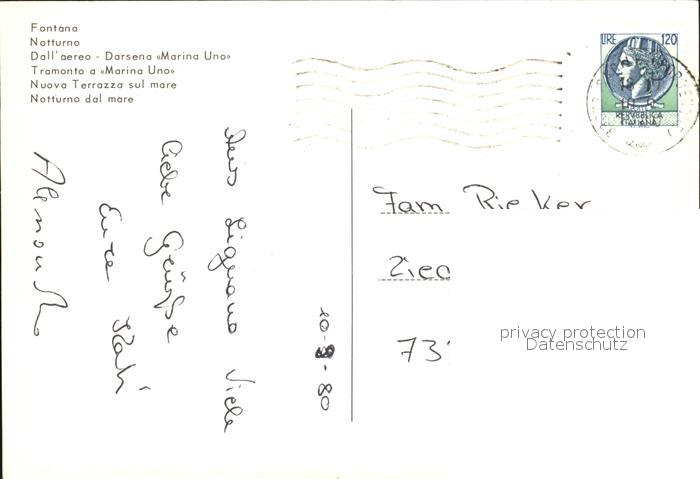 Fontana
Notturno
Dall'aereo - Darsena «Marina Uno»
Tramonto a «Marina Uno»
Nuova Terrazza sul mare
Notturno dal mare
LIRE 120
REPVBBLICA
ITALIANA
Aus Lignano Viele
liebe Grüße
Eure Kati
10-9-80
Fam Rieker
73
privacy protection
Datenschutz